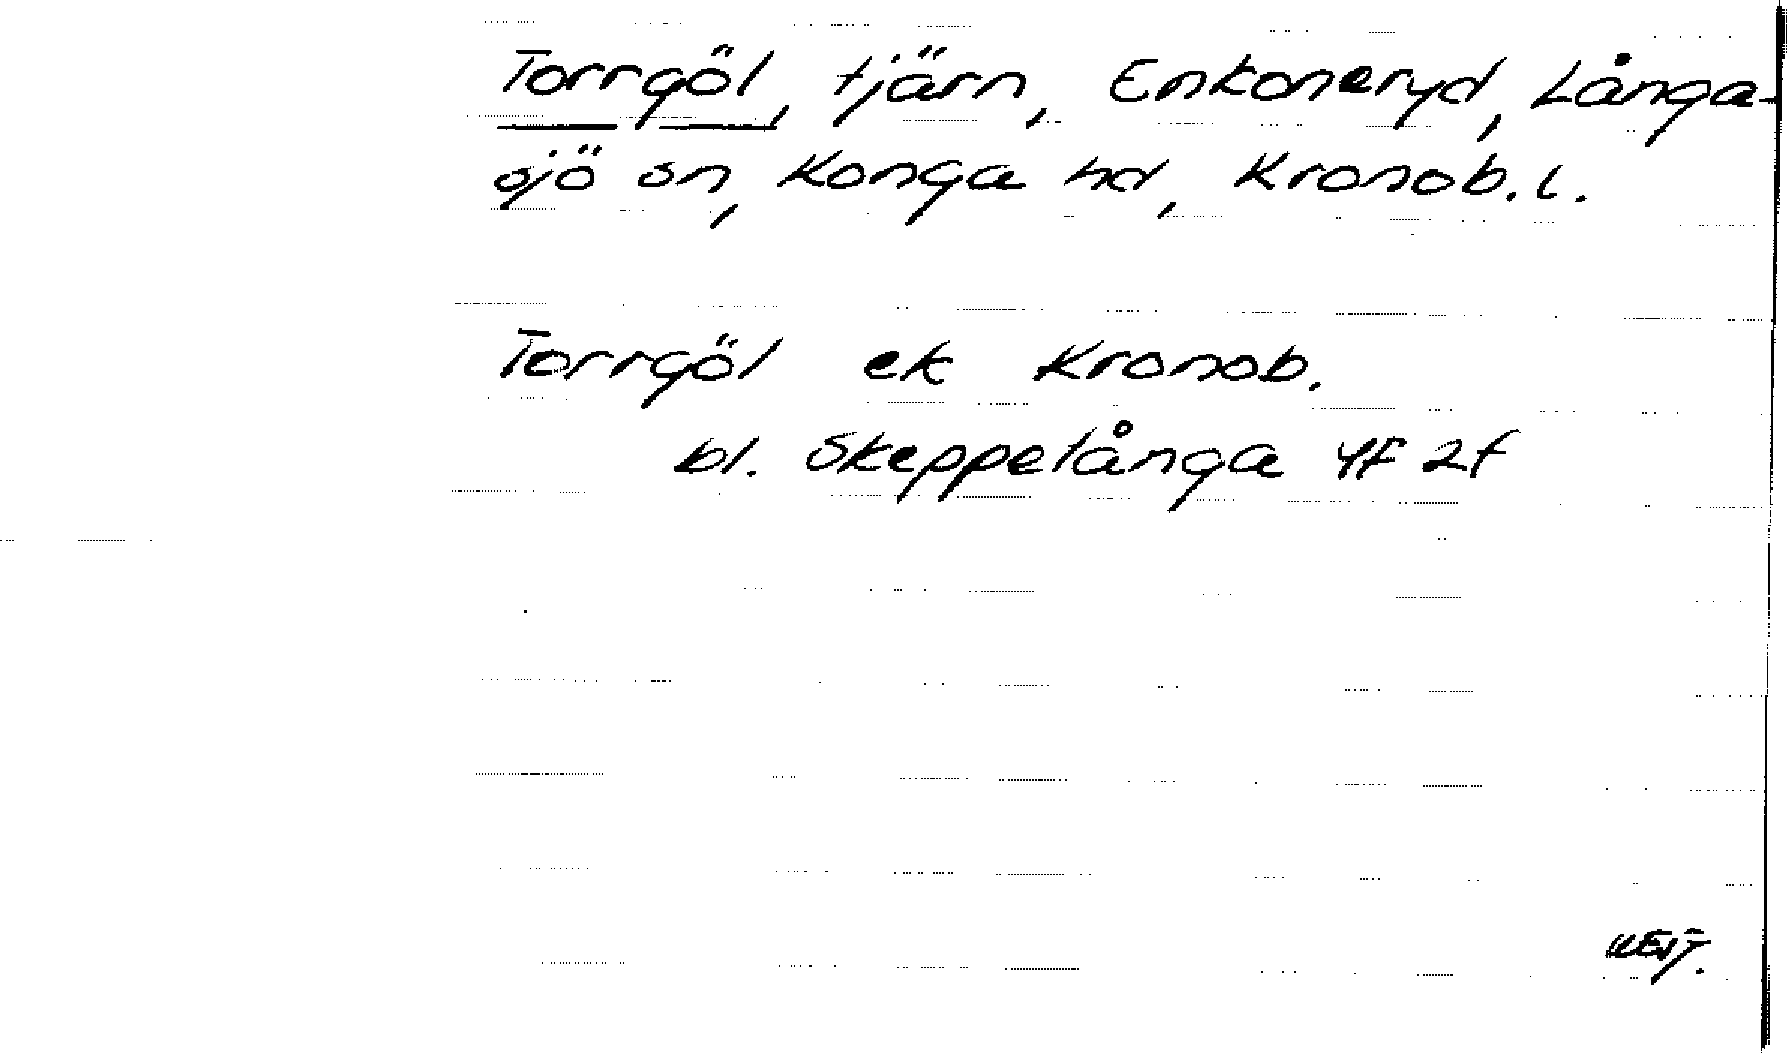 Torrgöl, tjärn, Enkoneryd, Långa-
sjö sn, Konga hd, Kronob. l.
Torrgöl ek Kronob.
bl. Skeppetånga 4f 2f